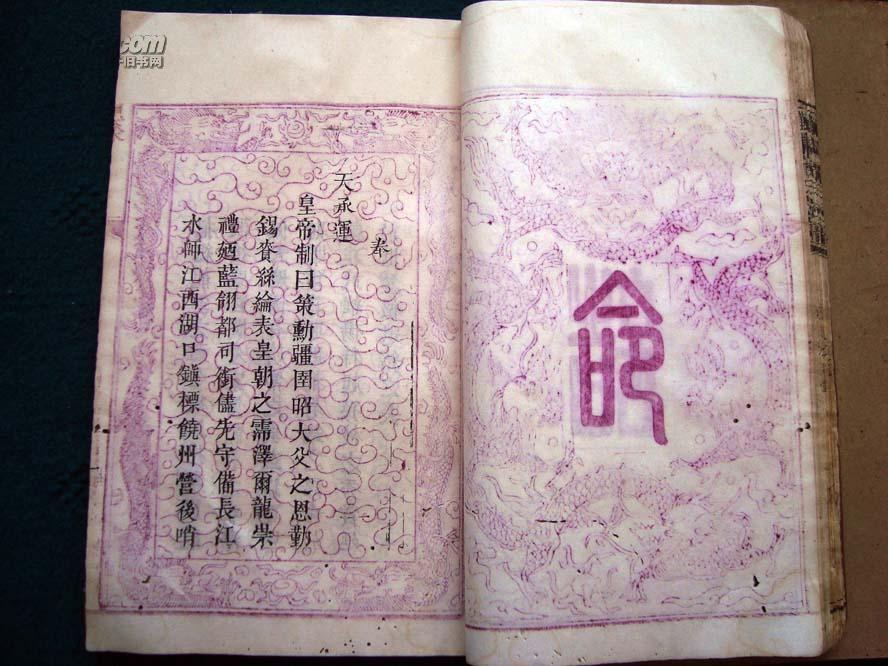 命
奉
天承運
皇帝制曰策勳疆圉昭大父之恩勤
錫賚絲綸表皇朝之霈澤爾龍崇
禮廼藍翎都司銜儘先守備長江
水師江西湖口鎮標饒州營後哨
.com
旧书网